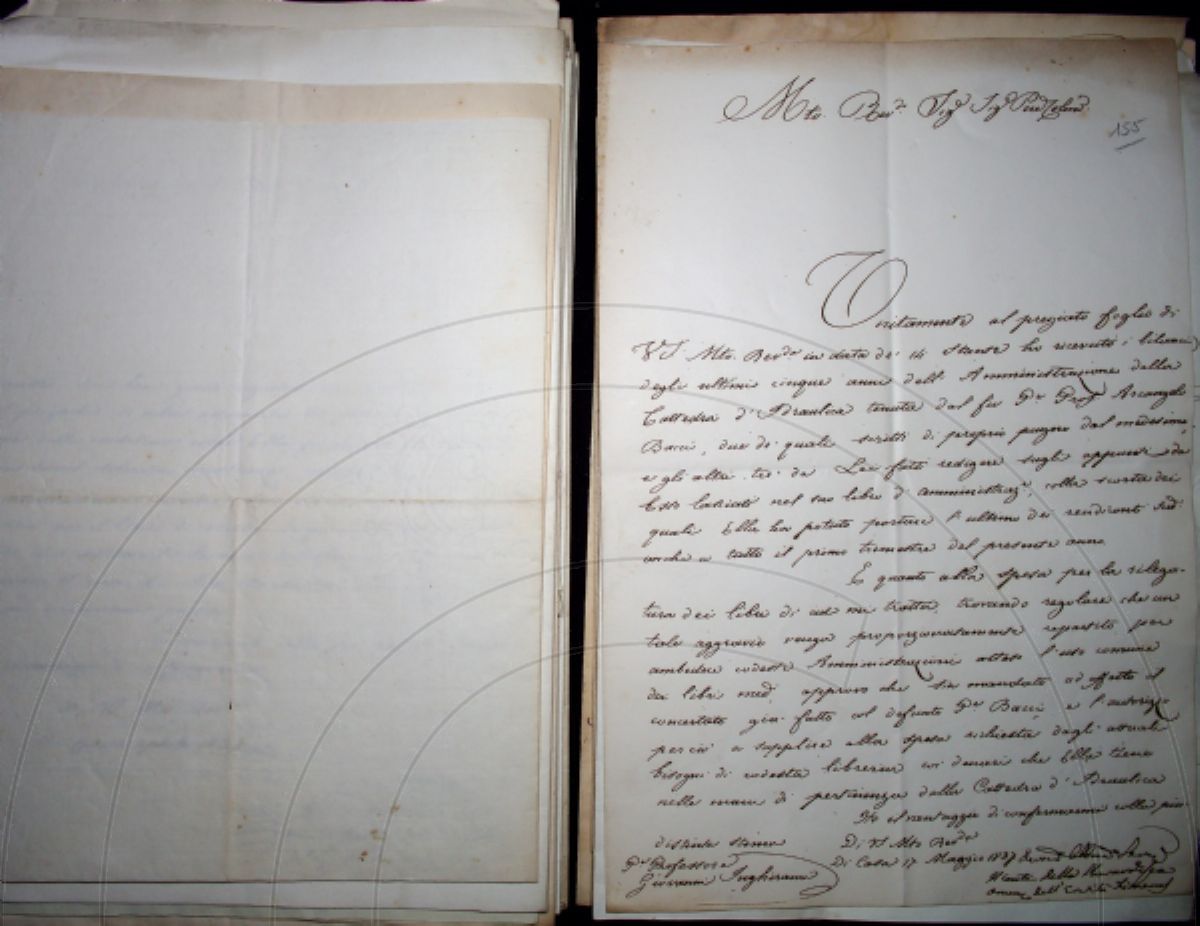 Mto. Revdo. Sigr. Sigr. Prone Colmo.
155
Unitamente al pregiato foglio di
V.S. Mto. Revda in data de' 14 stante ho ricevuti i bilanci
degli ultimi cinque anni dell' Amministrazione della
Cattedra d' Idraulica tenuta dal fu Pre. Arcangelo
Bacci, due de' quali scritti di proprio pugno dal medesimo,
e gli altri tre da Lei fatti redigere sugli appunti da
Esso lasciati nel suo libro d' amministraze, colla scorta dei
quali Ella ha potuto portare l' ultimo dei rendiconti
anche a tutto il primo trimestre del presente anno.
E quanto alla spesa per la rilega-
tura dei libri di cui mi tratta, trovando regolare che un
tale aggravio venga proporzionatamente repartito per
ambedue codeste Amministrazioni atteso l' uso comune
dei libri medi approvo che sia mandato ad effetto il
concertato già fatto col defunto Pre Bacci, e l' autorizzo
perciò a supplire alla spesa richiesta dagli attuali
bisogni di codesta libreria coi denari che Ella tiene
nelle mani di pertinenza della Cattedra d' Idraulica
Ho il vantaggio di confermarmi colla più
distinta stima
Di VS Mto Revda
Pre Professore
Giovanni Inghirami
Di Casa 17 Maggio 1837